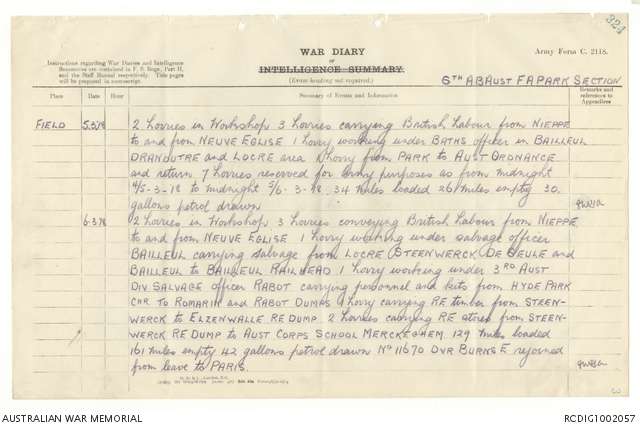 324
WAR DIARY
or
INTELLIGENCE SUMMARY.
(Erase heading not required.)
Army Form C. 2118.
Instructions regarding War Diaries and Intelligence
Summaries are contained in F. S. Regs., Part II.
and the Staff Manual respectively. Title pages
will be prepared in manuscript.
6TH AB AUST FA PARK SECTION
Place Date Hour Summary of Events and Information Remarks and references to Appendices
FIELD 5.3.18 2 Lorries in Workshop 3 Lorries carrying British Labour from NIEPPE
to and from NEUVE EGLISE 1 Lorry working under BATHS officer in BAILLEUL
DRANOUTRE and LOCRE area 1 Lorry from PARK to AUST ORDNANCE
and return 7 Lorries reserved for army purposes as from midnight
4/5-3-18 to midnight 5/6-3-18. 34 miles loaded 26 miles empty 30
gallons petrol drawn
6.3.18 2 Lorries in Workshop 3 Lorries conveying British Labour from NIEPPE
to and from NEUVE EGLISE 1 Lorry working under salvage officer
BAILLEUL carrying salvage from LOCRE STEENWERCK DE SEULE and
BAILLEUL to BAILLEUL RAILHEAD 1 Lorry working under 3RD AUST
DIV SALVAGE officer RABOT carrying personnel and kits from HYDE PARK
CNR TO ROMARIN and RABOT DUMPS 1 Lorry carrying RE timber from STEEN-
WERCK to ELZENWALLE RE DUMP 2 Lorries carrying RE stores from STEEN-
WERCK RE DUMP to AUST CORPS SCHOOL MERCKEGHEM 129 miles loaded
161 miles empty 42 gallons petrol drawn No 11670 DVR BURNS E rejoined
from leave to PARIS.
AUSTRALIAN WAR MEMORIAL
RCDIG1002057